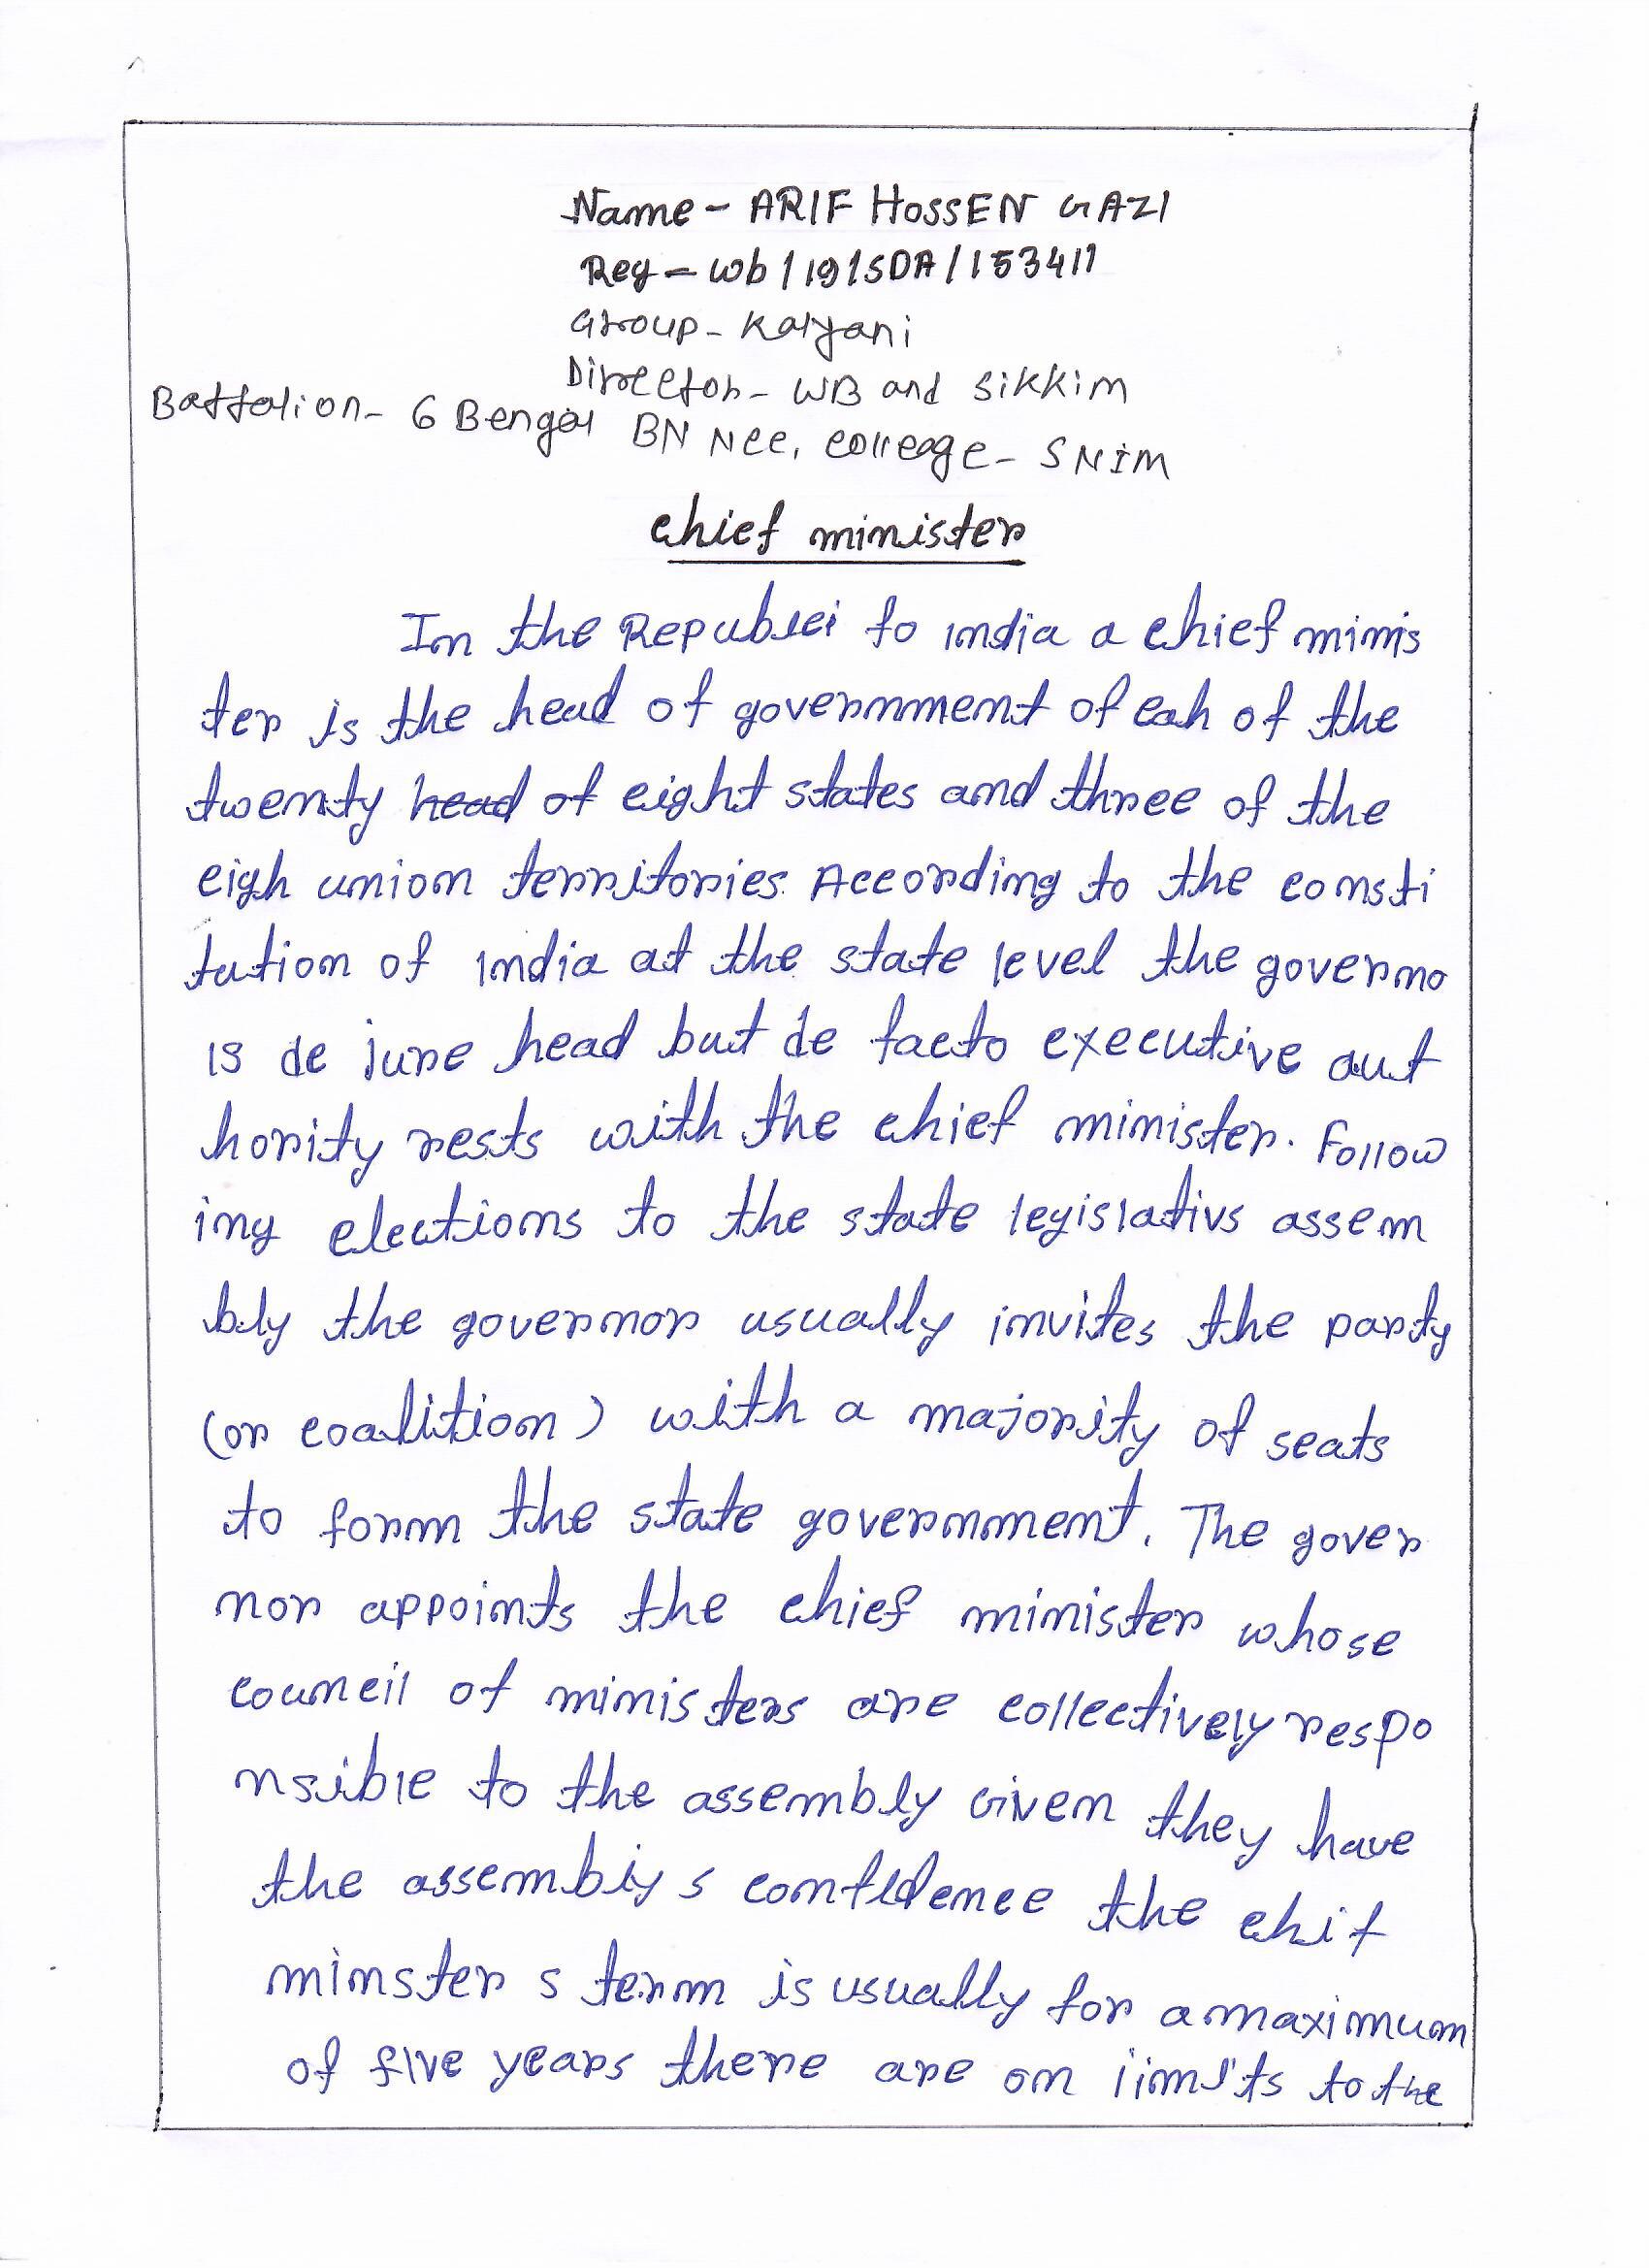 Name - ARIF HOSSEN GAZI
Reg - wb/19/SDA/153411
Group - Kalyani
Director - WB and Sikkim
Battalion - 6 Bengal BN Ncc, colleage - SNIM
chief minister
In the Republei to india a chief minis
ter is the head of government of eah of the
twenty head of eight states and three of the
eigh union territories. According to the consti
tution of india at the state level the governo
is de jure head but de facto executive aut
hority rests with the chief minister. Follow
ing elections to the state legislativs assem
bly the governor usually invites the party
(or coalition) with a majority of seats
to form the state government. The gover
nor appoints the chief minister whose
council of ministers are collectively respo
nsible to the assembly Given they have
the assembly s confidence the chif
minster s term is usually for a maximum
of five years there are on limits to the